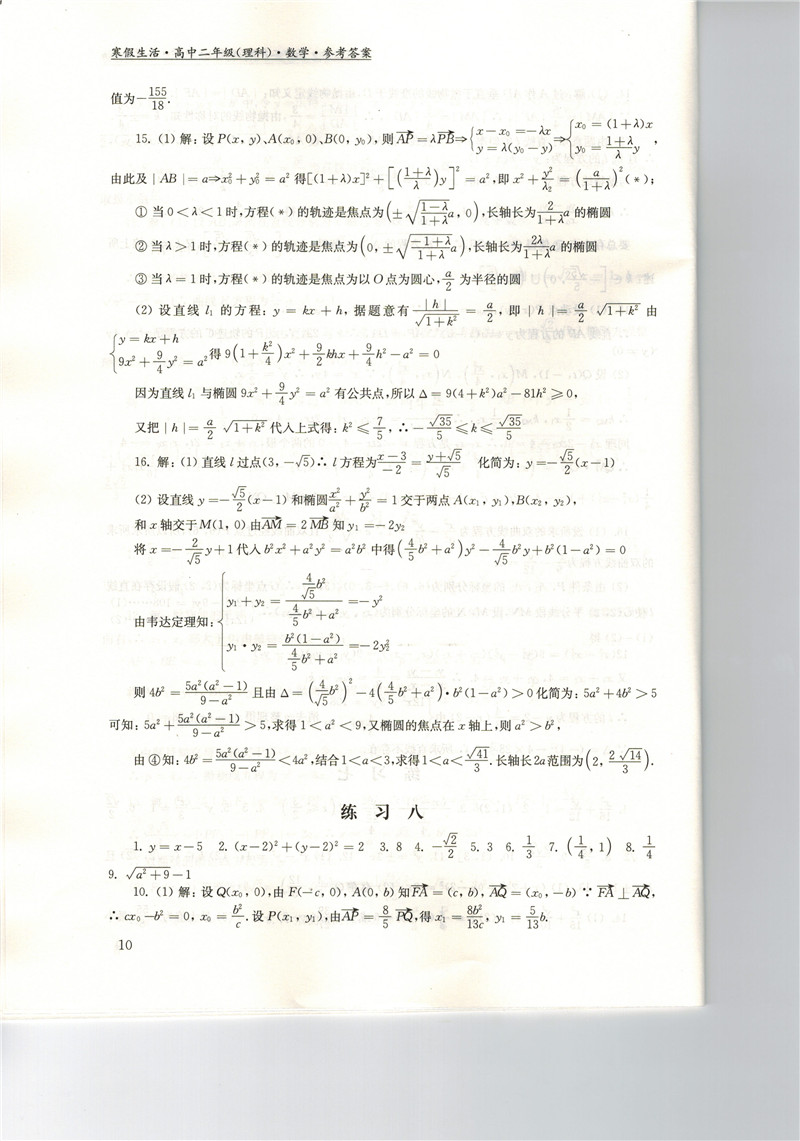 寒假生活·高中二年级(理科)·数学·参考答案
值为-155/18.
15. (1) 解:设 P(x, y)、A(x₀, 0)、B(0, y₀),则 AP→ = λPB→ ⇒ {x-x₀ =-λx; y = λ(y₀-y)} ⇒ {x₀ = (1+λ)x; y₀ = (1+λ)/λ y},
由此及 | AB | = a⇒x₀²+y₀² = a² 得[(1+λ)x]² + [((1+λ)/λ)y]² = a²,即 x² + y²/λ₂ = (a/(1+λ))² (*);
① 当 0<λ<1 时,方程(*) 的轨迹是焦点为(±√((1-λ)/(1+λ))a, 0),长轴长为 2/(1+λ) a 的椭圆
② 当 λ>1 时,方程(*) 的轨迹是焦点为(0, ±√((-1+λ)/(1+λ))a),长轴长为 2λ/(1+λ) a 的椭圆
③ 当 λ = 1 时,方程(*) 的轨迹是焦点为以 O 点为圆心, a/2 为半径的圆
(2) 设直线 l₁ 的方程: y = kx + h, 据题意有 | h |/√(1+k²) = a/2, 即 | h |= a/2 √(1+k²) 由
{y = kx+h; 9x²+9/4 y² = a²} 得 9(1+k²/4)x²+9/2 khx+9/4 h²-a² = 0
因为直线 l₁ 与椭圆 9x²+9/4 y² = a² 有公共点,所以 Δ = 9(4+k²)a²-81h² ≥ 0,
又把 | h |= a/2 √(1+k²) 代入上式得: k² ≤ 7/5, ∴ -√35/5 ≤ k ≤ √35/5
16. 解: (1) 直线 l 过点(3, -√5)∴ l 方程为 (x-3)/-2 = (y+√5)/√5 化简为: y =-√5/2 (x-1)
(2) 设直线 y =-√5/2 (x-1) 和椭圆 x²/a² + y²/b² = 1 交于两点 A(x₁, y₁),B(x₂, y₂),
和 x 轴交于 M(1, 0) 由 AM→ = 2 MB→ 知 y₁ =-2y₂
将 x =-2/√5 y+1 代入 b²x²+a²y² = a²b² 中得 (4/5 b²+a²)y²-4/√5 b²y+b²(1-a²) = 0
由韦达定理知: {y₁+y₂ = (4/√5 b²)/(4/5 b²+a²) =-y²; y₁·y₂ = b²(1-a²)/(4/5 b²+a²) =-2y₂²}
则 4b² = 5a²(a²-1)/(9-a²) 且由 Δ = (4/√5 b²)²-4(4/5 b²+a²)·b²(1-a²)>0 化简为: 5a²+4b²>5
可知: 5a²+5a²(a²-1)/(9-a²)>5,求得 1<a²<9,又椭圆的焦点在 x 轴上,则 a²>b²,
由④知: 4b² = 5a²(a²-1)/(9-a²)<4a²,结合1<a<3,求得1<a<√41/3. 长轴长 2a 范围为(2, 2√14/3).
练 习 八
1. y = x-5 2. (x-2)²+(y-2)² = 2 3. 8 4. -√2/2 5. 3 6. 1/3 7. (1/4, 1) 8. 1/4
9. √(a²+9)-1
10. (1) 解: 设 Q(x₀, 0),由 F(-c, 0), A(0, b) 知 FA→ = (c, b), AQ→ = (x₀, -b) ∵ FA→ ⊥ AQ→,
∴ cx₀-b² = 0, x₀ = b²/c. 设 P(x₁, y₁),由 AP→ = 8/5 PQ→,得 x₁ = 8b²/13c, y₁ = 5/13 b.
10